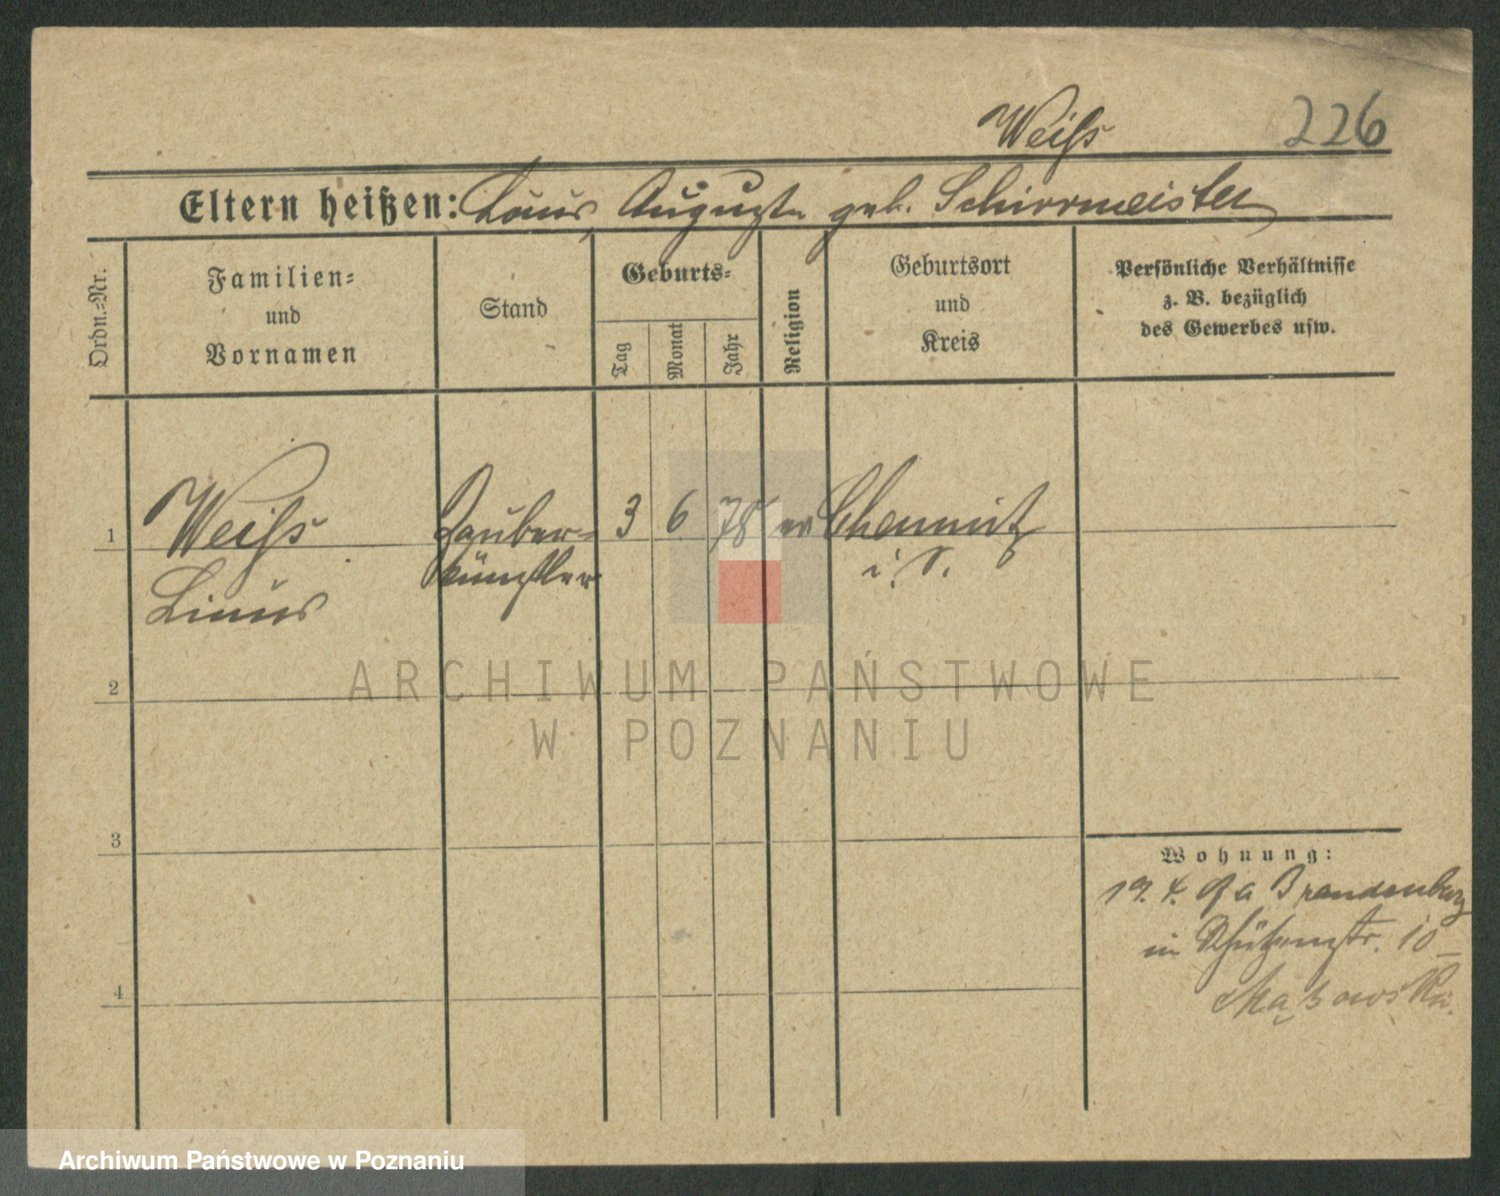 Weiſs 226
Eltern heißen: Louis, Auguste geb. Schirrmeister
Ordn.=Nr.
Familien=
und
Vornamen
Stand
Geburts=
Tag
Monat
Jahr
Religion
Geburtsort
und
Kreis
Persönliche Verhältnisse
z. B. bezüglich
des Gewerbes usw.
1 Weiſs Zauber= 3 6. 78 ev Chemnitz
Linus künstler i. S.
2
3
4
Wohnung:
19. 4. Brandenburg
in Schützenstr. 10
ARCHIWUM PAŃSTWOWE
W POZNANIU
Archiwum Państwowe w Poznaniu